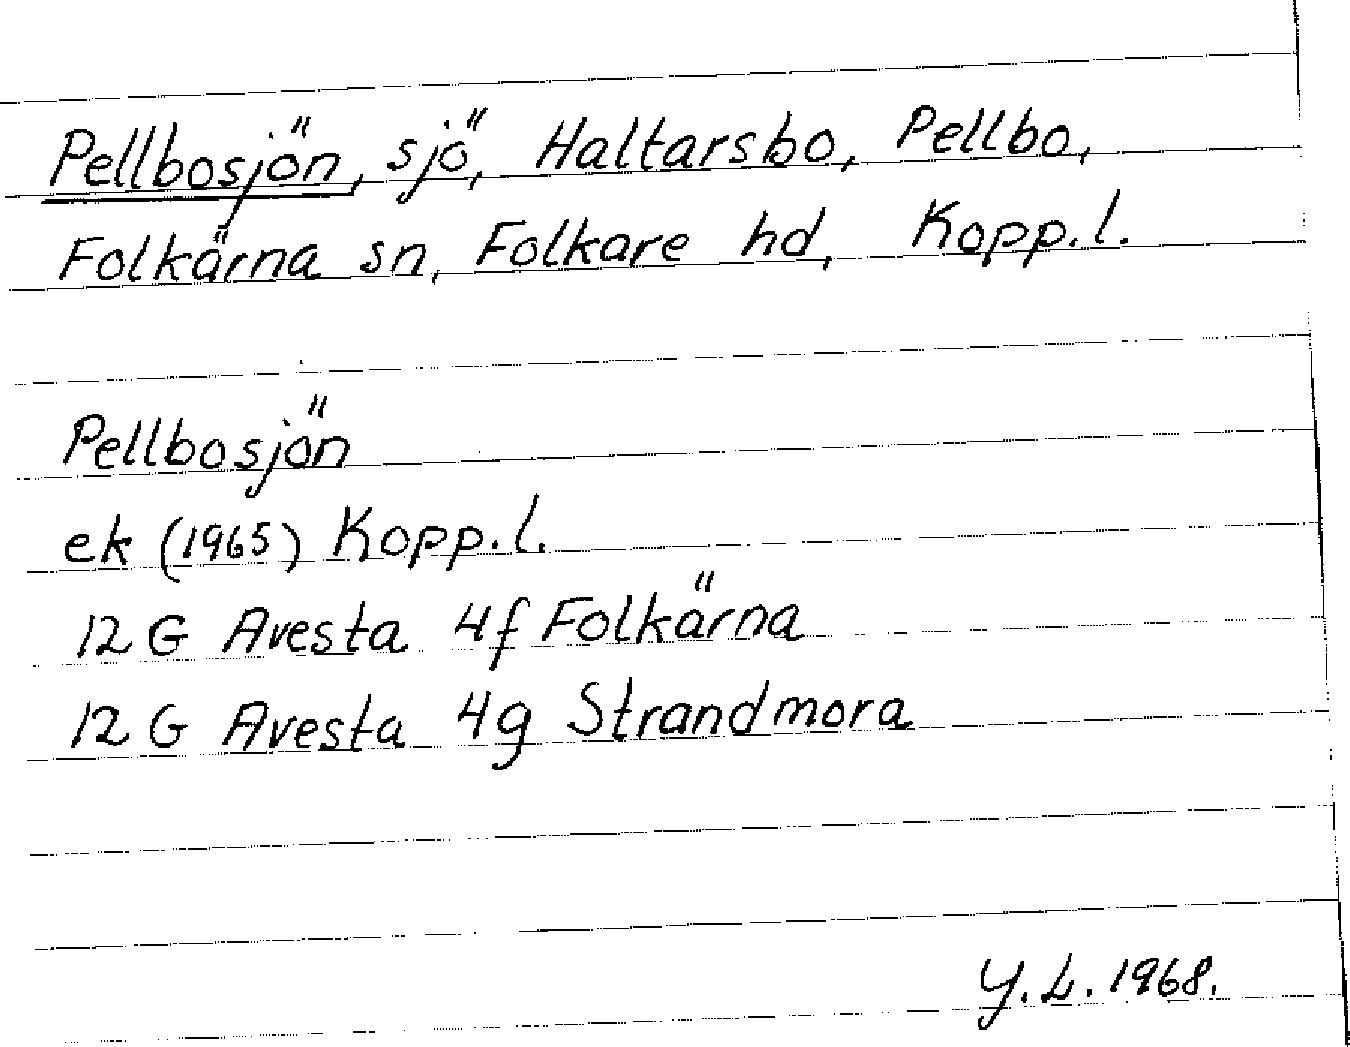 Pellbosjön, sjö, Haltarsbo, Pellbo,
Folkärna sn, Folkare hd, Kopp.l.
Pellbosjön
ek (1965) Kopp.l.
12 G Avesta 4f Folkärna
12 G Avesta 4g Strandmora
Y.L. 1968.